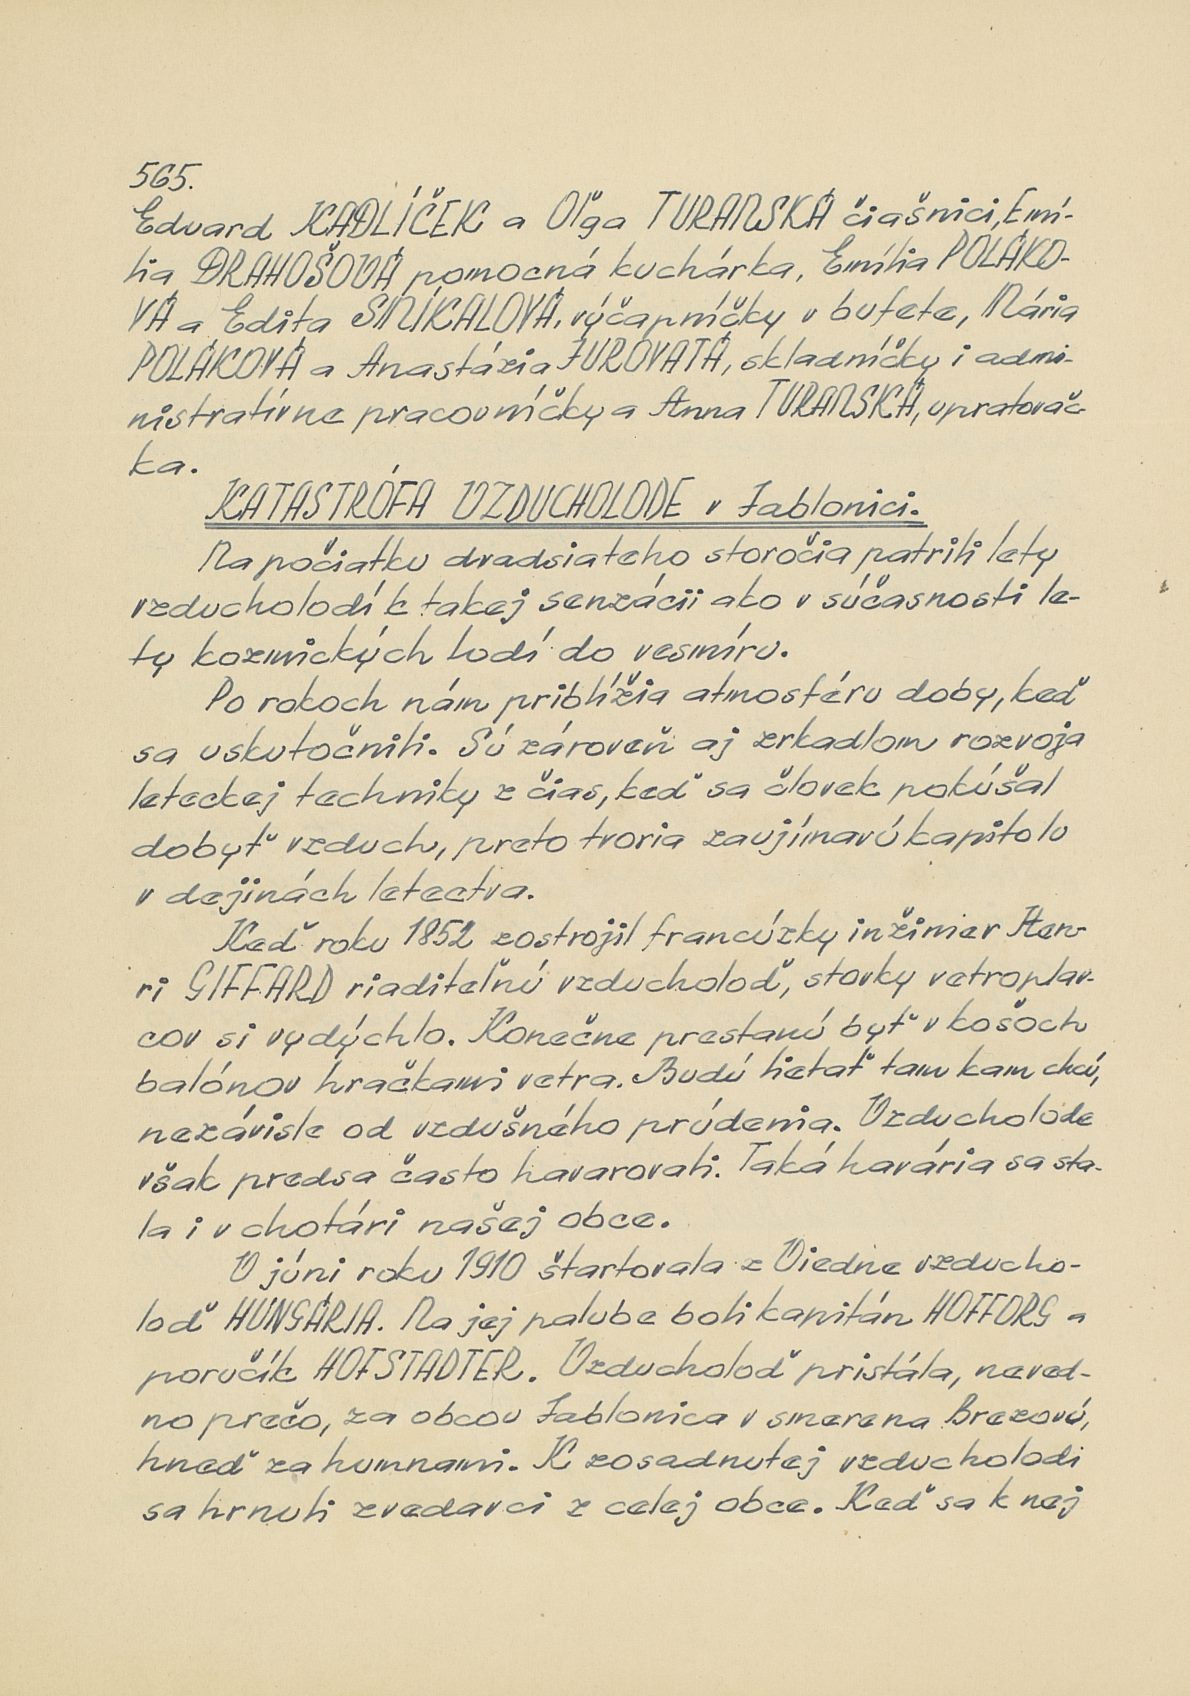 565.
Eduard KADLÍČEK a Oľga TURANSKÁ čiašnici, Emí-
lia DRAHOŠOVÁ pomocná kuchárka, Emília POLÁKO-
VÁ a Edita SMÍKALOVÁ, výčapníčky v bufete, Mária
POLÁKOVÁ a Anastázia JUROVATÁ, skladníčky i admi-
nistratívne pracovníčky a Anna TURANSKÁ, upratovač-
ka.
KATASTRÓFA VZDUCHOLODE v Jablonici.
Na počiatku dvadsiateho storočia patrili lety
vzducholodí k takej senzácii ako v súčasnosti le-
ty kozmických lodí do vesmíru.
Po rokoch nám priblížia atmosféru doby, keď
sa uskutočnili. Sú zároveň aj zrkadlom rozvoja
leteckej techniky z čias, keď sa človek pokúšal
dobyť vzduch, preto tvoria zaujímavú kapitolu
v dejinách letectva.
Keď roku 1852 zostrojil francúzky inžinier Hen-
ri GIFFARD riaditeľnú vzducholoď, stovky vetroplav-
cov si vydýchlo. Konečne prestanú byť v košoch
balónov hračkami vetra. Budú lietať tam kam chcú,
nezávisle od vzdušného prúdenia. Vzducholode
však predsa často havarovali. Taká havária sa sta-
la i v chotári našej obce.
V júni roku 1910 štartovala z Viedne vzducho-
loď HUNGÁRIA. Na jej palube boli kapitán HOFFORG a
poručík HOFSTADTER. Vzducholoď pristála, neved-
no prečo, za obcou Jablonica v smere na Brezovú,
hneď za humnami. K zosadnutej vzducholodi
sa hrnuli zvedavci z celej obce. Keď sa k nej